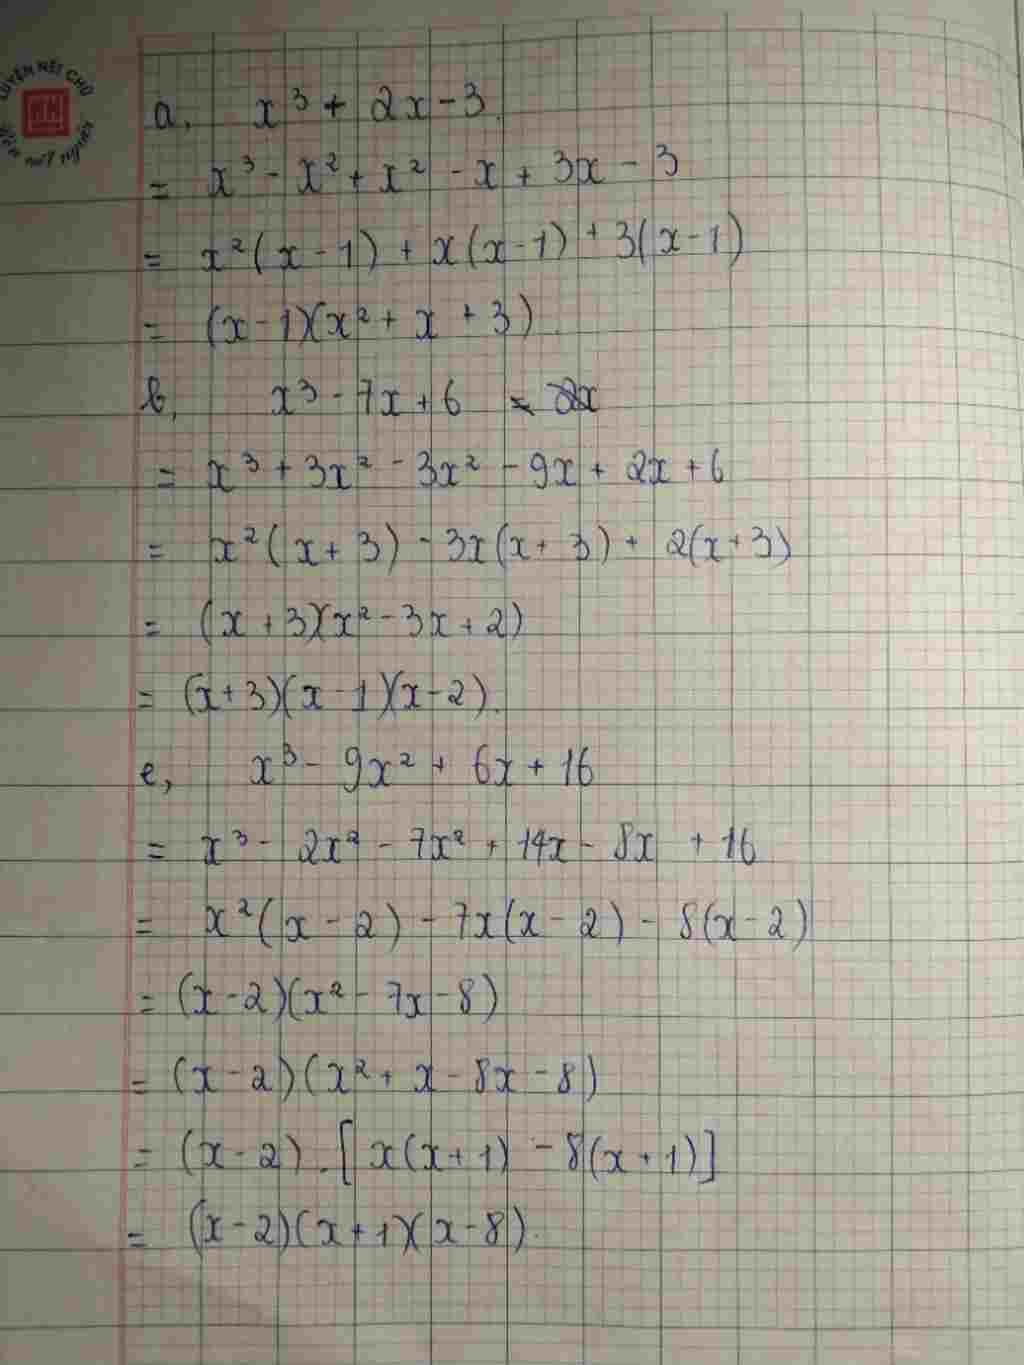 LUYỆN NÉT CHỮ
rèn nết người
a, x³ + 2x - 3.
= x³ - x² + x² - x + 3x - 3
= x²(x - 1) + x(x - 1) + 3(x - 1)
= (x - 1)(x² + x + 3).
b, x³ - 7x + 6
= x³ + 3x² - 3x² - 9x + 2x + 6
= x²(x + 3) - 3x(x + 3) + 2(x + 3)
= (x + 3)(x² - 3x + 2)
= (x + 3)(x - 1)(x - 2).
e, x³ - 9x² + 6x + 16
= x³ - 2x² - 7x² + 14x - 8x + 16
= x²(x - 2) - 7x(x - 2) - 8(x - 2)
= (x - 2)(x² - 7x - 8)
= (x - 2)(x² + x - 8x - 8)
= (x - 2).[x(x + 1) - 8(x + 1)]
= (x - 2)(x + 1)(x - 8).